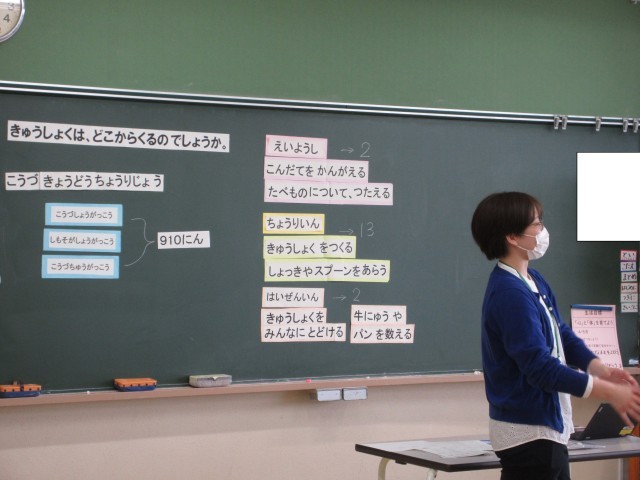 きゅうしょくは、どこからくるのでしょうか。
こうづきょうどうちょうりじょう
こうづしょうがっこう
しもそがしょうがっこう
こうづちゅうがっこう
910にん
えいようし → 2
こんだてを かんがえる
たべものについて、つたえる
ちょうりいん → 13
きゅうしょくをつくる
しょっきやスプーンをあらう
はいぜんいん → 2
きゅうしょくを
みんなにとどける
牛にゅう や
パンを数える